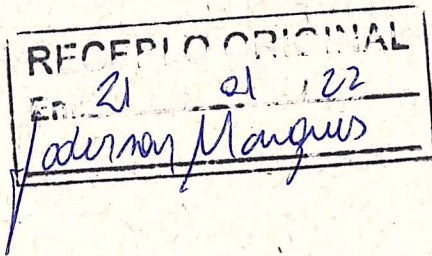 RECEBI O ORIGINAL
Em 21 01 22
Marques